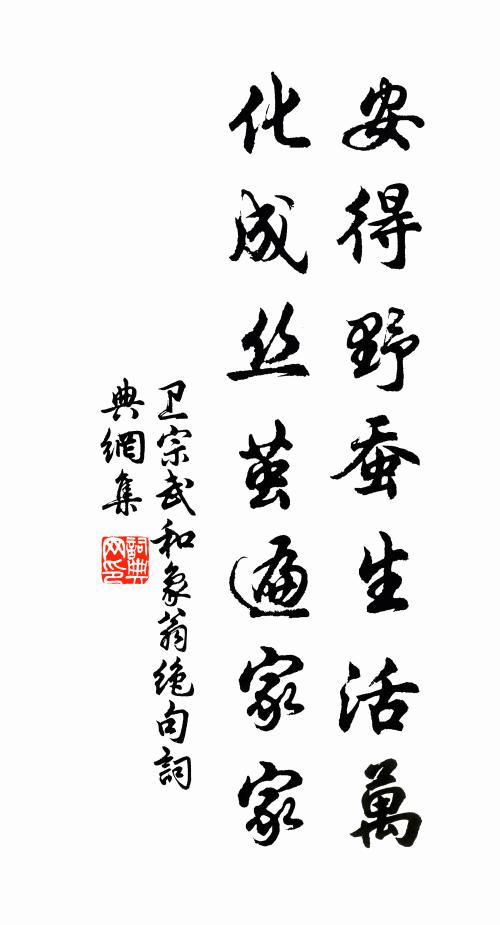 安得野蚕生活萬
化成丝茧遍家家
卫宗武和象翁绝句詞
典網集
詞典
网印